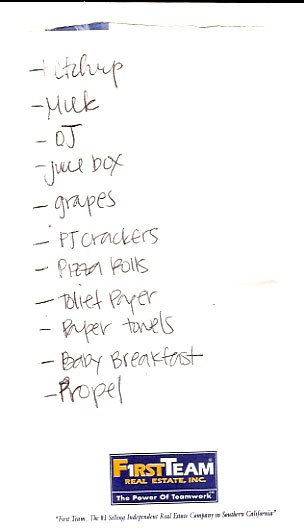 - Ketchup
- Milk
- OJ
- juice box
- grapes
- PJ crackers
- Pizza Rolls
- Toliet Paper
- Paper towels
- Baby Breakfast
- Propel
FIRST TEAM
REAL ESTATE, INC.
The Power Of Teamwork
"First Team...The #1 Selling Independent Real Estate Company in Southern California"